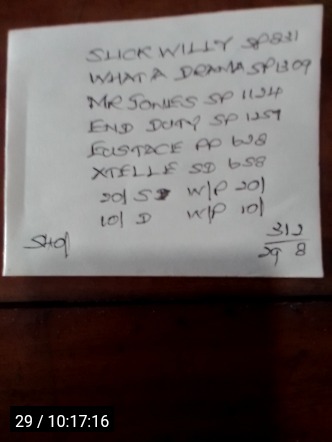 SLICK WILLY SP 831
WHAT A DRAMA SP 1309
MR JONES SP 1124
END DUTY SP 1259
EUSTACE PP 628
XTELLE SD 658
20/ S W/P 20/
10/ D W/P 10/
312
29 8
29 / 10:17:16